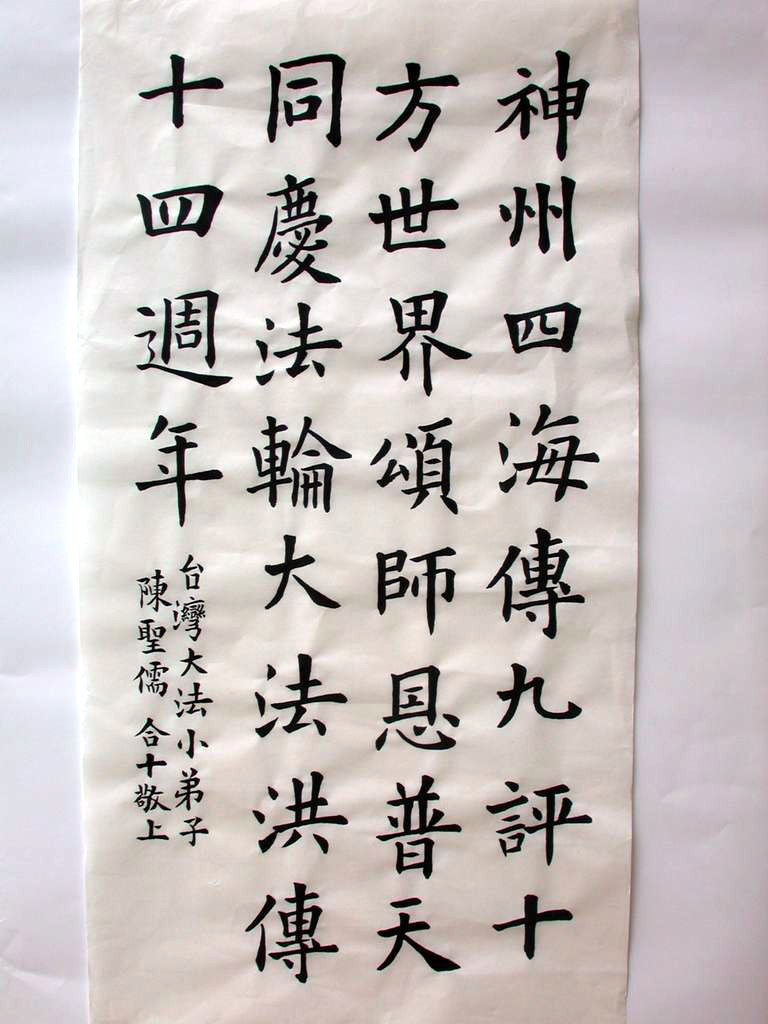 神州四海傳九評十
方世界頌師恩普天
同慶法輪大法洪傳
十四週年
台灣大法小弟子
陳聖儒 合十敬上